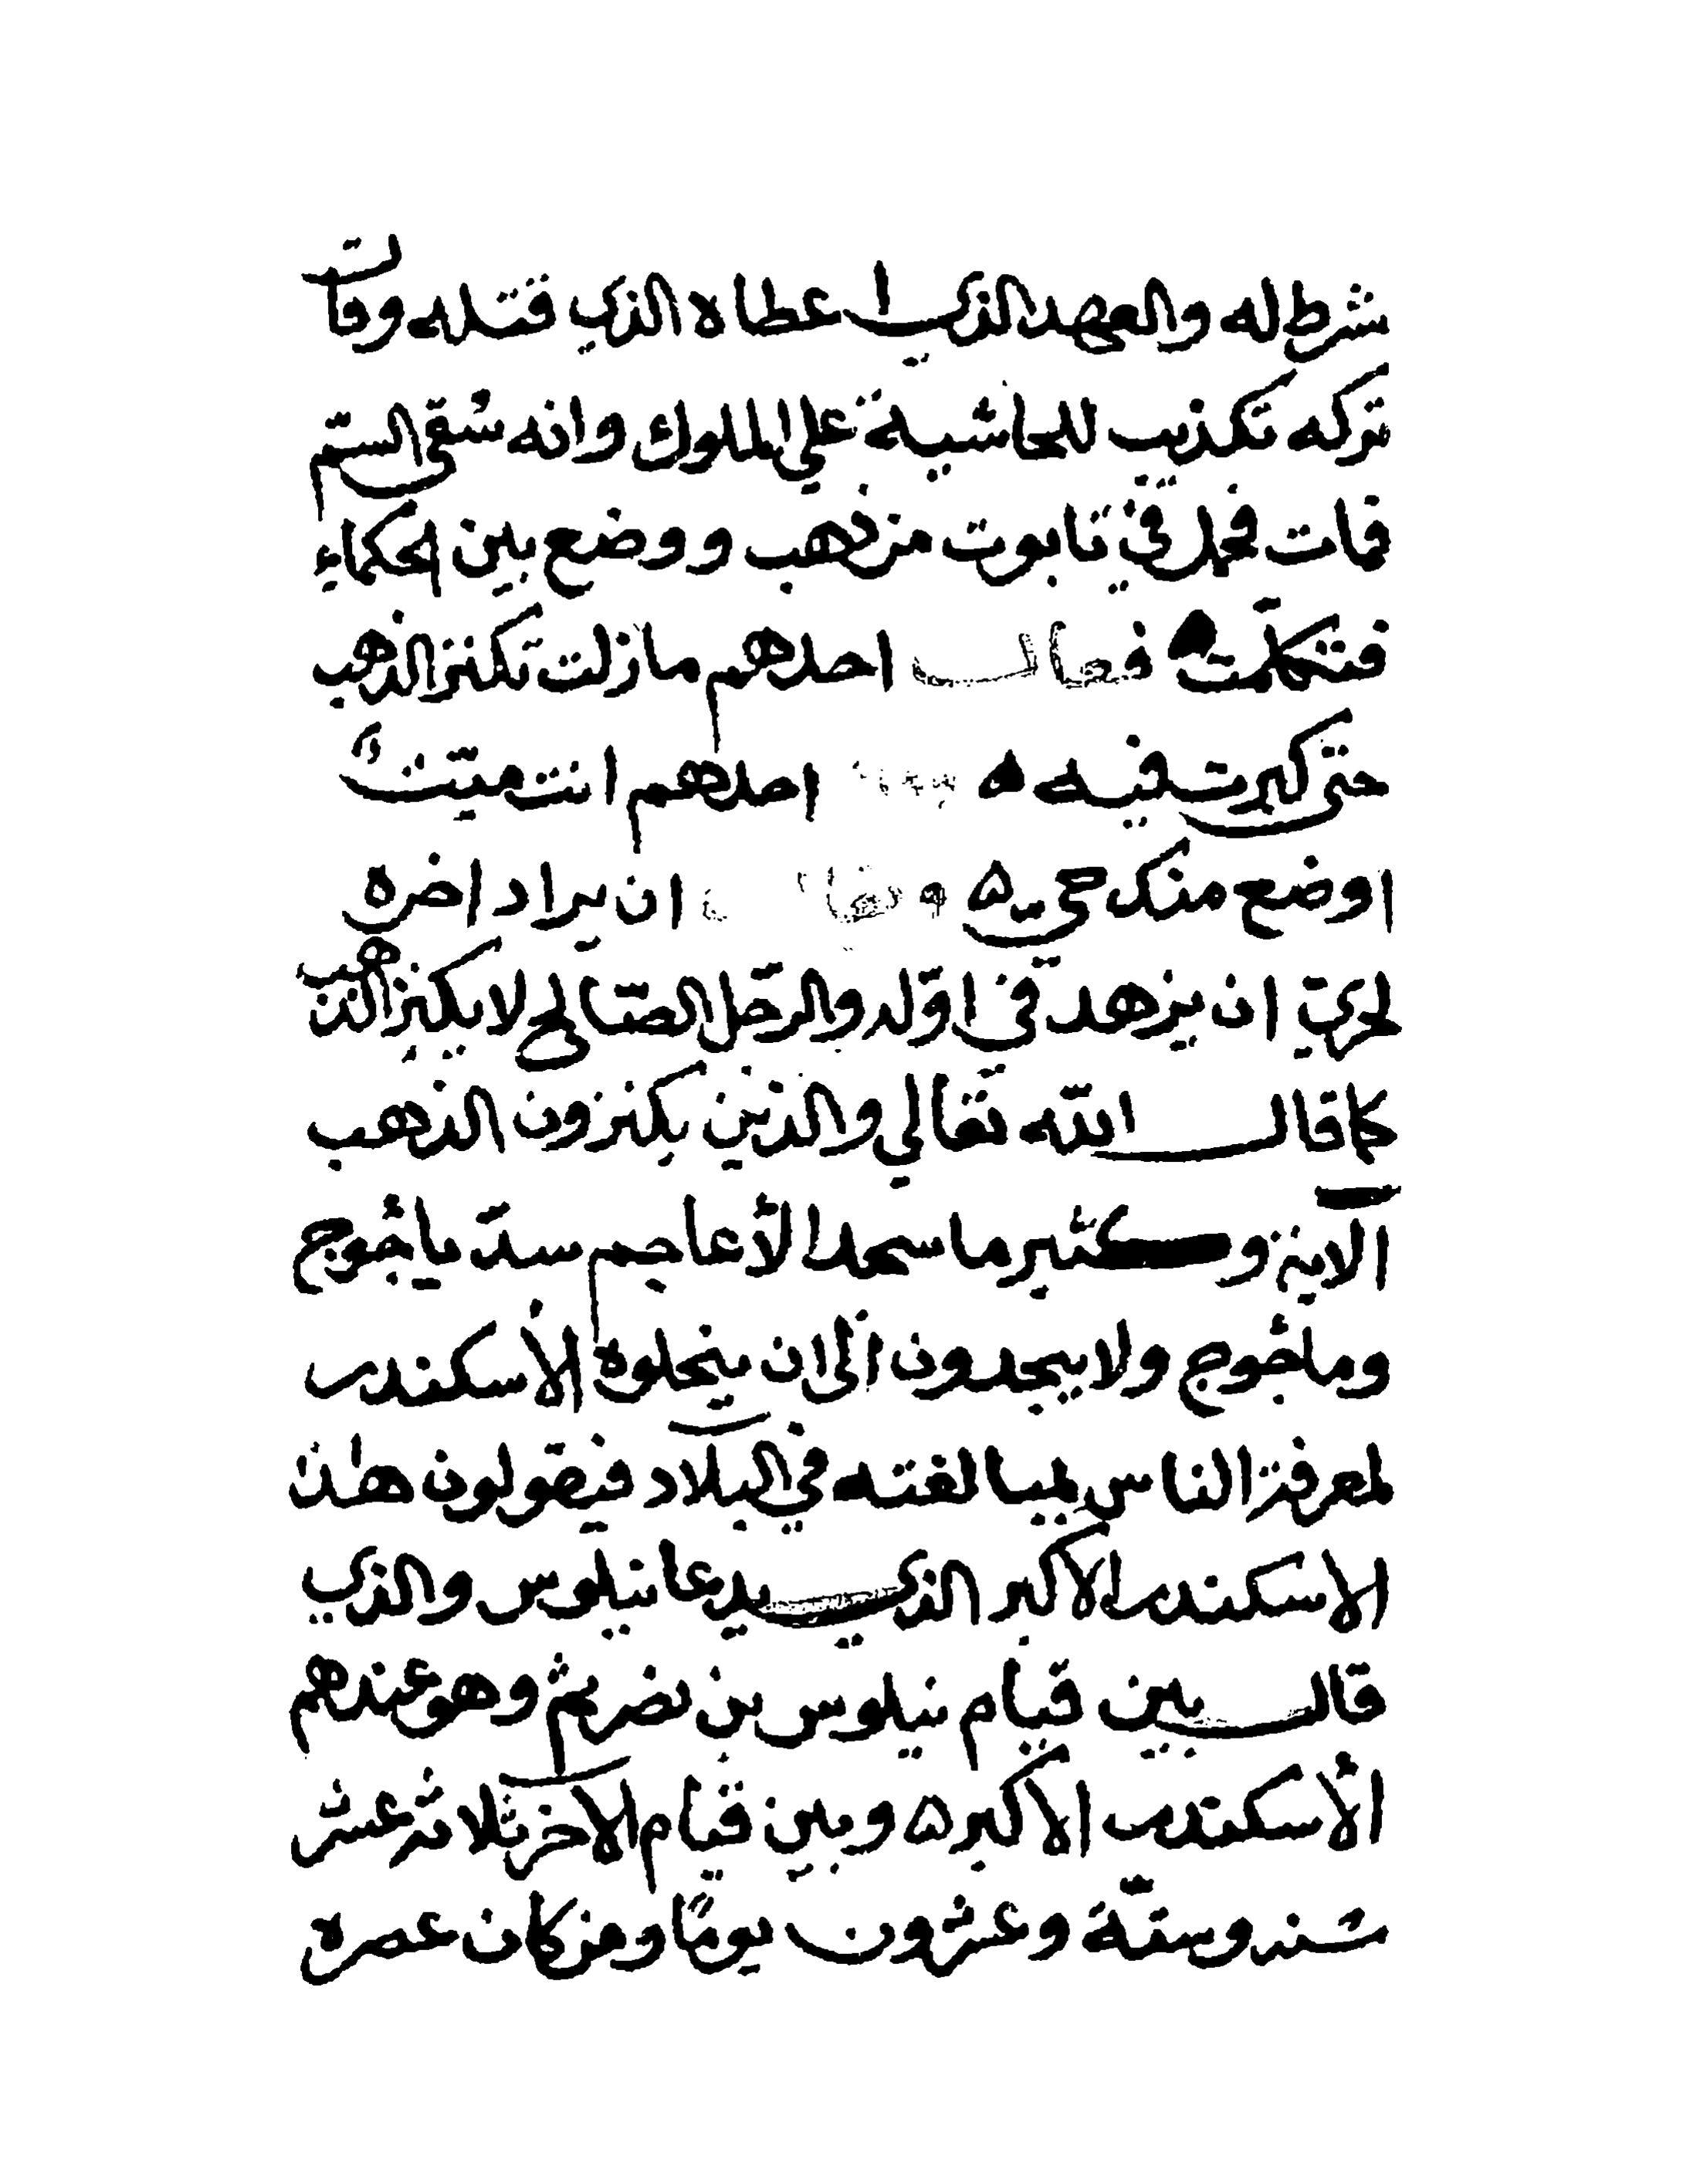 شرط له والعهد الذي اعطاه الذي قتله وقات
تركه تكذيب للحاشية علي الملوك وانه سقي السم
فمات فحمل في تابوت من ذهب ووضع بين الحكماء
فتكلمت فقال احدهم ما زلت تكنز الذهب
حتى كنزت فيه ه احدهم انت ميتـ
اوضع منك حي ه وقال ان يراد اخره
لحري ان يزهد في اوله والرجل الصالح لا يكنز الذهب
كما قال الله تعالي والذين يكنزون الذهب
الاية وكثير ما سمعدا الأعاجم سد ياجوج
وماجوج ولا يجدون الى ان ينحلوه الأسكندر
لمعرفة الناس لمبالغته في البلاد فيقولون هذا
الاسكندر الأكبر الذي يدعا نيلوس والذي
قال بين قيام نيلوس بن وهو عندهم
الأسكندر الاكبر ه وبين قيام الاخر ثلاثة عشر
سنه وستة وعشرون يومًا ومن كان عصره